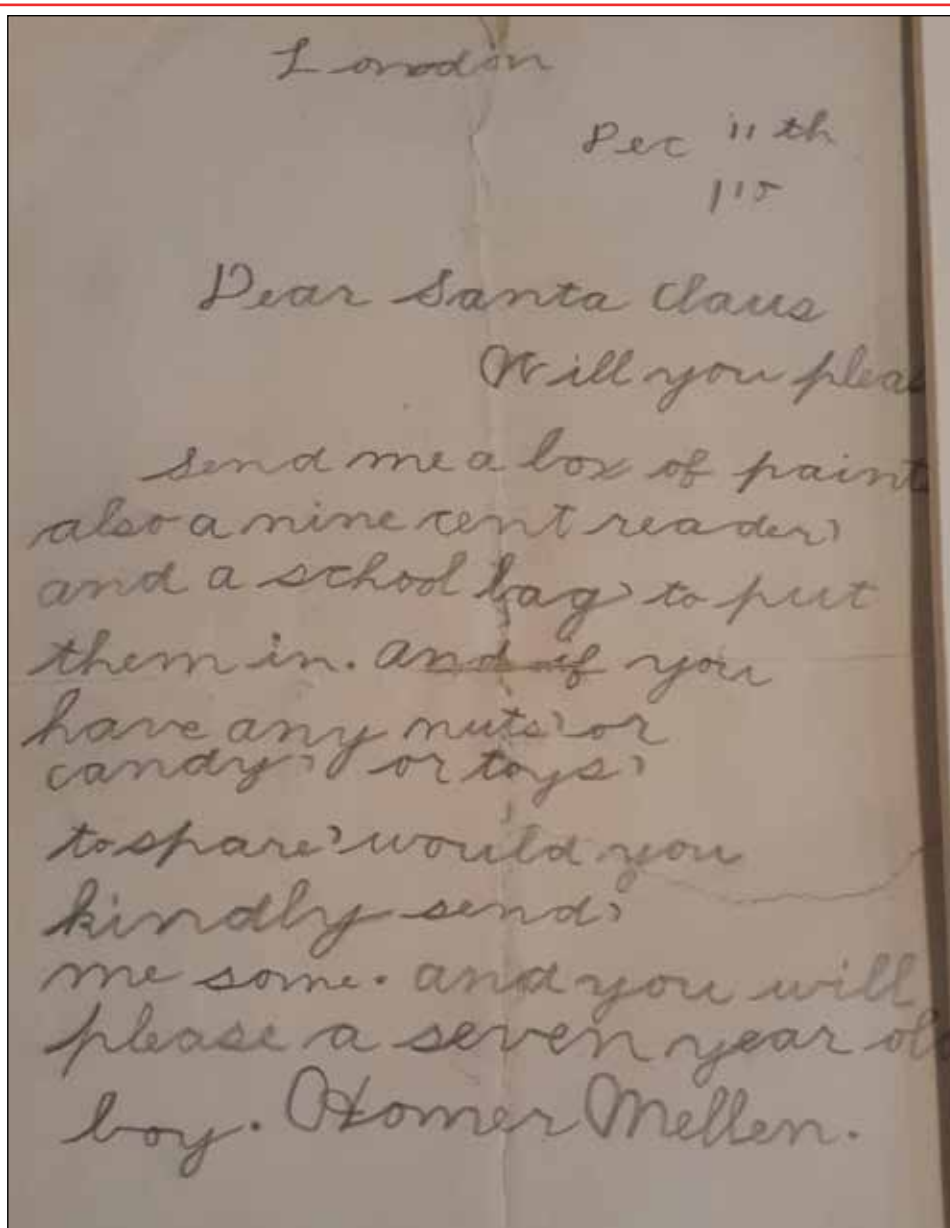 London
Dec 11th
Dear Santa Claus
Will you pleas
send me a box of paint
also a nine cent reader,
and a school bag, to put
them in. and if you
have any nuts, or
candy, or toys,
to spare, would you
kindly send,
me some. and you will
please a seven year ol
boy. Homer Mellen.